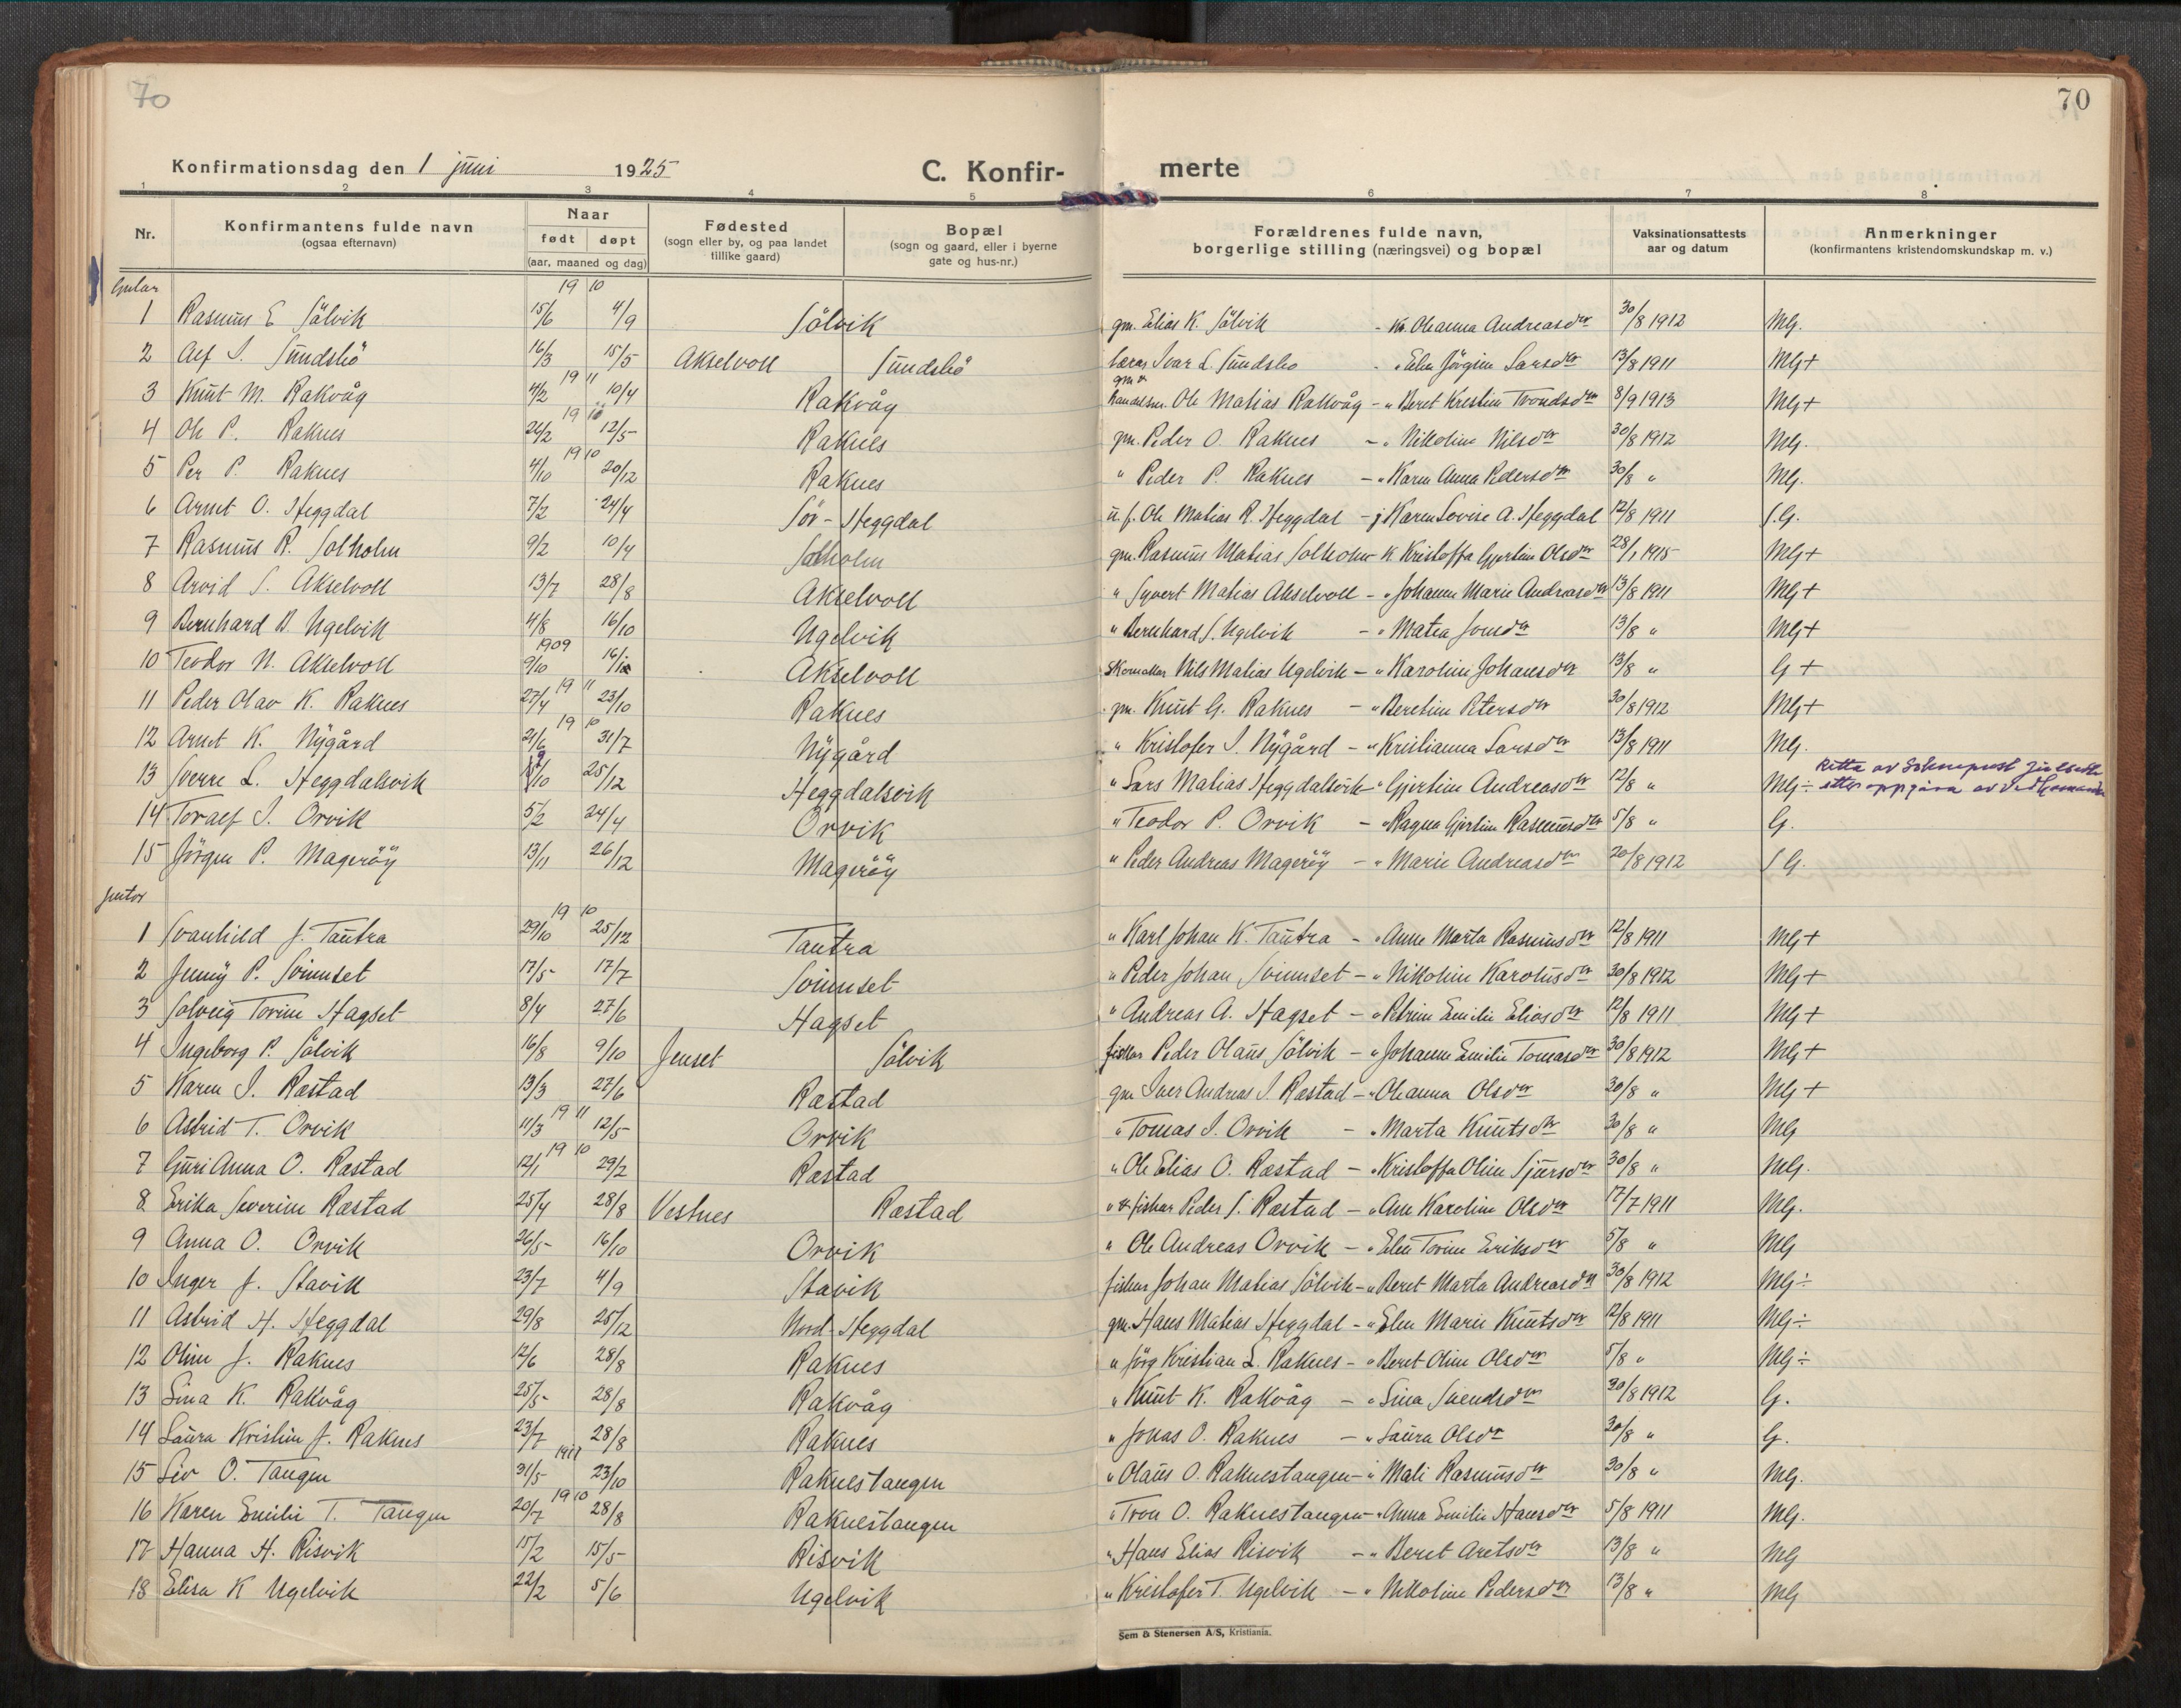 70
70
Konfirmationsdag den 1 juni 1925 C. Konfir- merte
1 2 3 4 5 6 7 8
Nr. Konfirmantens fulde navn (ogsaa efternavn) Naar født døpt (aar, maaned og dag) Fødested (sogn eller by, og paa landet tillike gaard) Bopæl (sogn og gaard, eller i byerne gate og hus-nr.) Forældrenes fulde navn, borgerlige stilling (næringsvei) og bopæl Vaksinationsattests aar og datum Anmerkninger (konfirmantens kristendomskundskap m. v.)
Gutar 19 10
1 Rasmus E Sölvik 15/6 4/9 Sölvik gm. Elias K. Sölvik - K. Oleanna Andreasdtr 30/8 1912 Mg.
2 Alf I. Sundsbö 16/3 15/5 Akselvoll Sundsbö lærar Ivar L. Sundsbö - " Elen Jörgine Larsdtr 13/8 1911 Mg+
19 11
3 Knut M. Rakvåg 4/2 10/4 Rakvåg gm & handelsm. Ole Matias Rakvåg - " Beret Kristine Trondsdtr 8/9 1913 Mg+
19 10
4 Ole P. Raknes 26/2 12/5 Raknes gm. Peder O. Raknes - " Nikoline Nilsdtr 30/8 1912 Mg.
19 10
5 Per P. Raknes 4/10 20/12 Raknes " Peder P. Raknes - " Karen Anna Pedersdtr 30/8 " Mg.
6 Arnet O. Heggdal 7/2 24/4 Sör-Heggdal u. f. Ole Matias R. Heggdal - j Karen Lovise A. Heggdal 12/8 1911 S.G.
7 Rasmus R. Solholm 9/2 10/4 Solholm gm. Rasmus Matias Solholm K. Kristoffa Gjertine Olsdtr 28/1 1915 Mg+
8 Arvid S. Akselvoll 13/7 28/8 Akselvoll " Syvert Matias Akselvoll - " Johanne Marie Andreasdtr 13/8 1911 Mg+
9 Bernhard B. Ugelvik 4/8 16/10 Ugelvik " Bernhard S. Ugelvik - " Matea Jonsdtr 13/8 " Mg+
1909
10 Teodor N. Akselvoll 9/10 16/1 Akselvoll skomakar Nils Matias Ugelvik - " Karoline Johansdtr 13/8 " G+
19 11
11 Peder Olav K. Raknes 27/4 23/10 Raknes gm. Knut G. Raknes - " Beretine Petersdtr 30/8 1912 Mg+
19 10
12 Arnet K. Nygård 21/6 31/7 Nygård " Kristofer I. Nygård - " Kristianna Larsdtr 13/8 1911 Mg.
13 Sverre L. Heggdalsvik /10 25/12 Heggdalsvik " Lars Matias Heggdalsvik - " Gjertine Andreasdtr 12/8 " Mg÷ Retta av Sokneprest Julseth etter oppgåva av vedkomande
14 Toralf I. Orvik 5/2 24/4 Orvik " Teodor P. Orvik - " Ragna Gjertine Rasmusdtr 5/8 " G.
15 Jörgen P. Mageröy 13/11 26/12 Mageröy " Peder Andreas Mageröy - " Marie Andreasdtr 20/8 1912 S G.
Jentor
19 10
1 Svanhild J. Tautra 29/10 25/12 Tautra " Karl Johan K. Tautra - " Anne Marta Rasmusdtr 12/8 1911 Mg+
2 Jenny P. Svinnset 17/5 17/7 Svinnset " Peder Johan Svinnset - " Nikoline Karolusdtr 30/8 1912 Mg+
3 Solveig Torine Hagset 8/4 27/6 Hagset " Andreas A. Hagset - " Petrine Emilie Eliasdtr 12/8 1911 Mg+
4 Ingeborg P. Sölvik 16/8 9/10 Jenset Sölvik fiskar Peder Olaus Sölvik - " Johanne Emilie Tomasdtr 30/8 1912 Mg+
5 Karen I. Rastad 13/3 27/6 Rastad gm Iver Andreas I. Rastad - " Oleanna Olsdtr 30/8 " Mg+
19 11
6 Astrid T. Orvik 11/3 12/5 Orvik " Tomas I. Orvik - " Marta Knutsdtr 30/8 " Mg
19 10
7 Guri Anna O. Rastad 12/1 29/2 Rastad " Ole Elias O. Rastad - " Kristoffa Oline Sjursdtr 30/8 " Mg.
8 Erika Severine Rastad 25/4 28/8 Vestnes Rastad " & fiskar Peder S. Rastad - " Ane Karoline Olsdtr 17/7 1911 Mg.
9 Anna O. Orvik 26/5 16/10 Orvik " Ole Andreas Orvik - " Elen Torine Eriksdtr 5/8 " Mg
10 Inger J. Stavik 23/7 4/9 Stavik fiskar Johan Matias Sölvik - " Beret Marta Andreasdtr 30/8 1912 Mg÷
11 Astrid H. Heggdal 29/8 25/12 Nord-Heggdal gm. Hans Matias Heggdal - " Elen Marie Knutsdtr 12/8 1911 Mg÷
12 Oline J. Raknes 12/6 28/8 Raknes " Jörg Kristian L. Raknes - " Beret Oline Olsdtr 5/8 " Mg÷
13 Lina K. Rakvåg 25/5 28/8 Rakvåg " Knut K. Rakvåg - " Lina Svendsdtr 30/8 1912 G.
14 Laura Kristine J. Raknes 23/7 28/8 Raknes " Jonas O. Raknes - " Laura Olsdtr 30/8 " G.
1911
15 Liv O. Tangen 31/5 23/10 Raknestangen " Olaus O. Raknestangen - " Mali Rasmusdtr 30/8 " Mg.
19 10
16 Karen Emilie T. Tangen 20/7 28/8 Raknestangen " Tron O. Raknestangen - " Anna Emilie Hansdtr 5/8 1911 Mg.
17 Hanna H. Risvik 15/2 15/5 Risvik " Hans Elias Risvik - " Beret Aretsdtr 13/8 " Mg
18 Elisa K Ugelvik 22/2 5/6 Ugelvik " Kristofer T. Ugelvik - " Nikoline Pedersdtr 13/8 " Mg
Sem & Stenersen A/S, Kristiania.